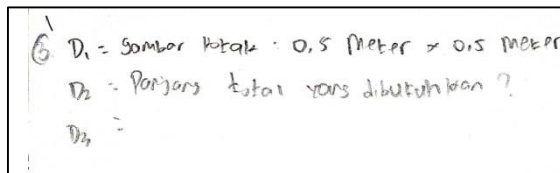 6. D₁ = Gambar kotak : 0,5 Meter × 0,5 meter
D₂ = Panjang total yang dibutuhkan ?
D₃ =